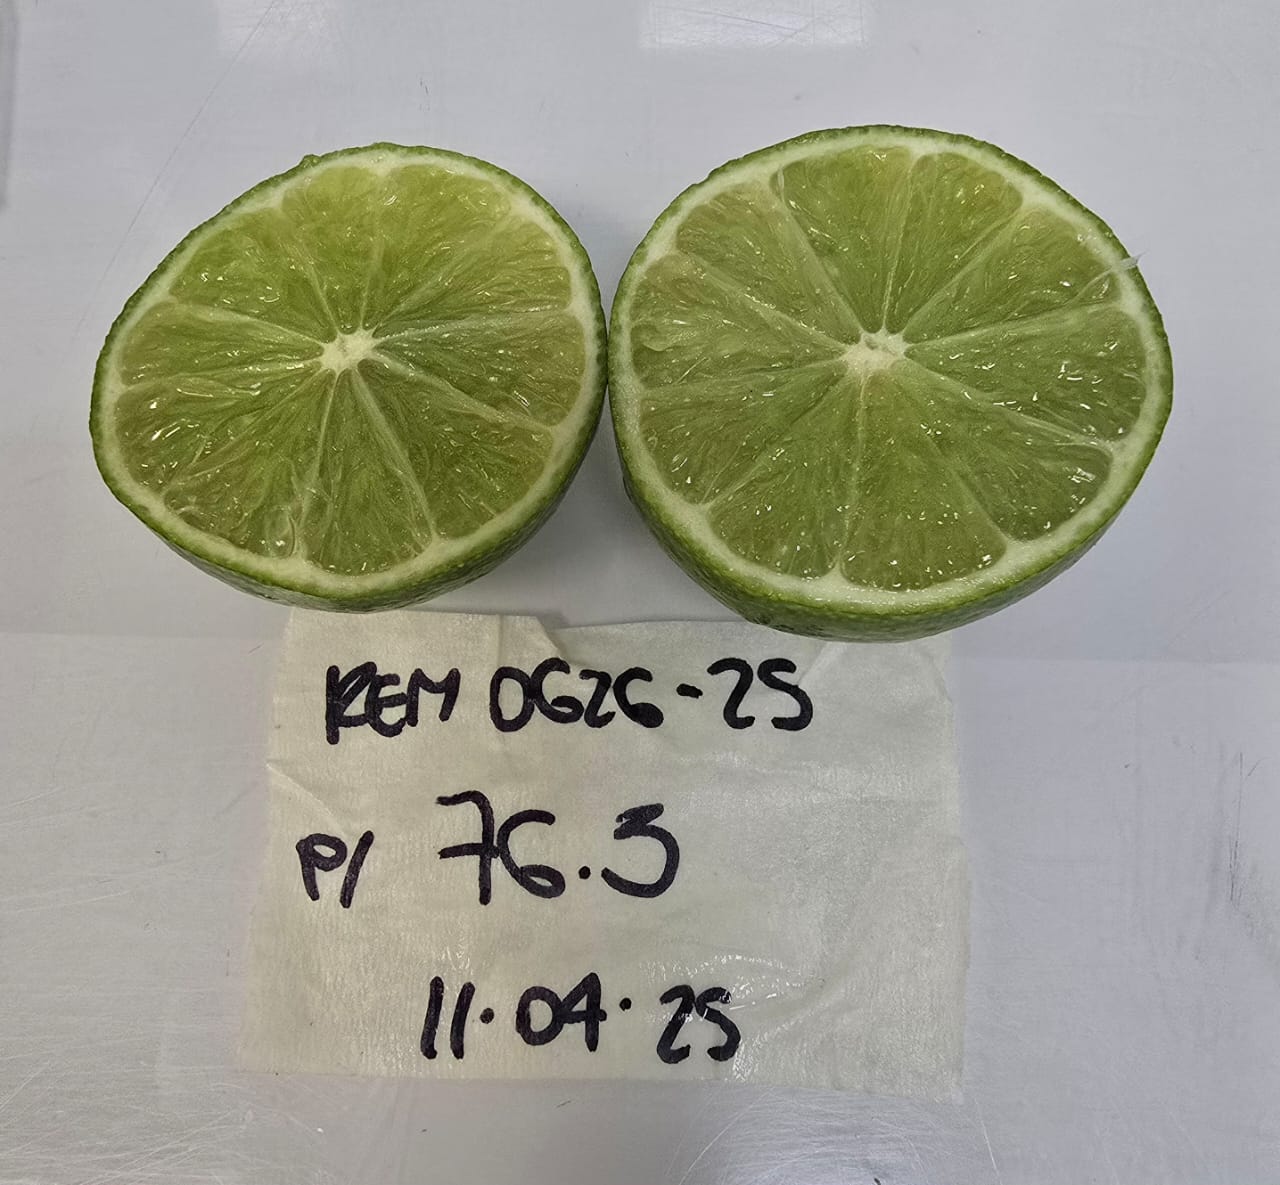 REM 0626-25
P/ 76.3
11.04.25